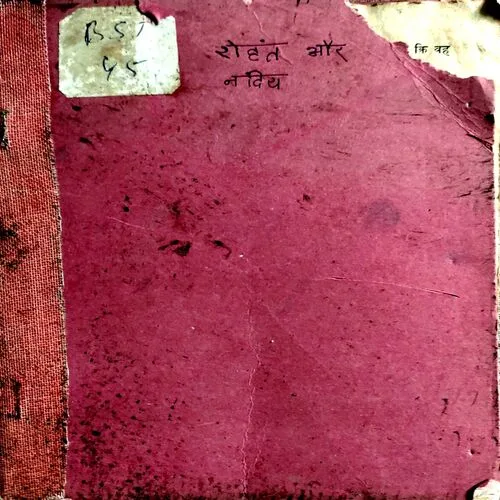 BST
45
रोहंत और
नंदिय
कि वह